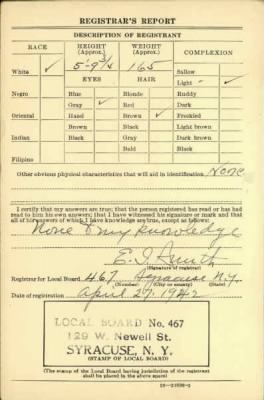 REGISTRAR'S REPORT
DESCRIPTION OF REGISTRANT
RACE HEIGHT (Approx.) WEIGHT (Approx.) COMPLEXION
5'-9¾ 165
White ✓ Sallow
EYES HAIR Light ✓
Negro Blue Blonde Ruddy
Gray ✓ Red Dark
Oriental Hazel Brown ✓ Freckled
Brown Black Light brown
Indian Black Gray Dark brown
Bald Black
Filipino
Other obvious physical characteristics that will aid in identification None
I certify that my answers are true; that the person registered has read or has had
read to him his own answers; that I have witnessed his signature or mark and that
all of his answers of which I have knowledge are true, except as follows:
None to my knowledge
E. J. Smith
(Signature of registrar)
Registrar for Local Board 467 Syracuse N.Y.
(Number) (City or county) (State)
Date of registration April 27 1942
LOCAL BOARD No. 467
129 W. Newell St.
SYRACUSE, N. Y.
(STAMP OF LOCAL BOARD)
(The stamp of the Local Board having jurisdiction of the registrant
shall be placed in the above space)